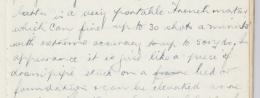 is a very portable trench mortar
which can fire up to 30 shots a minute
with extreme accuracy up to 50
appearance it is just like a piece of
drain pipe stuck on a frame bed or
foundation & can be elevated some